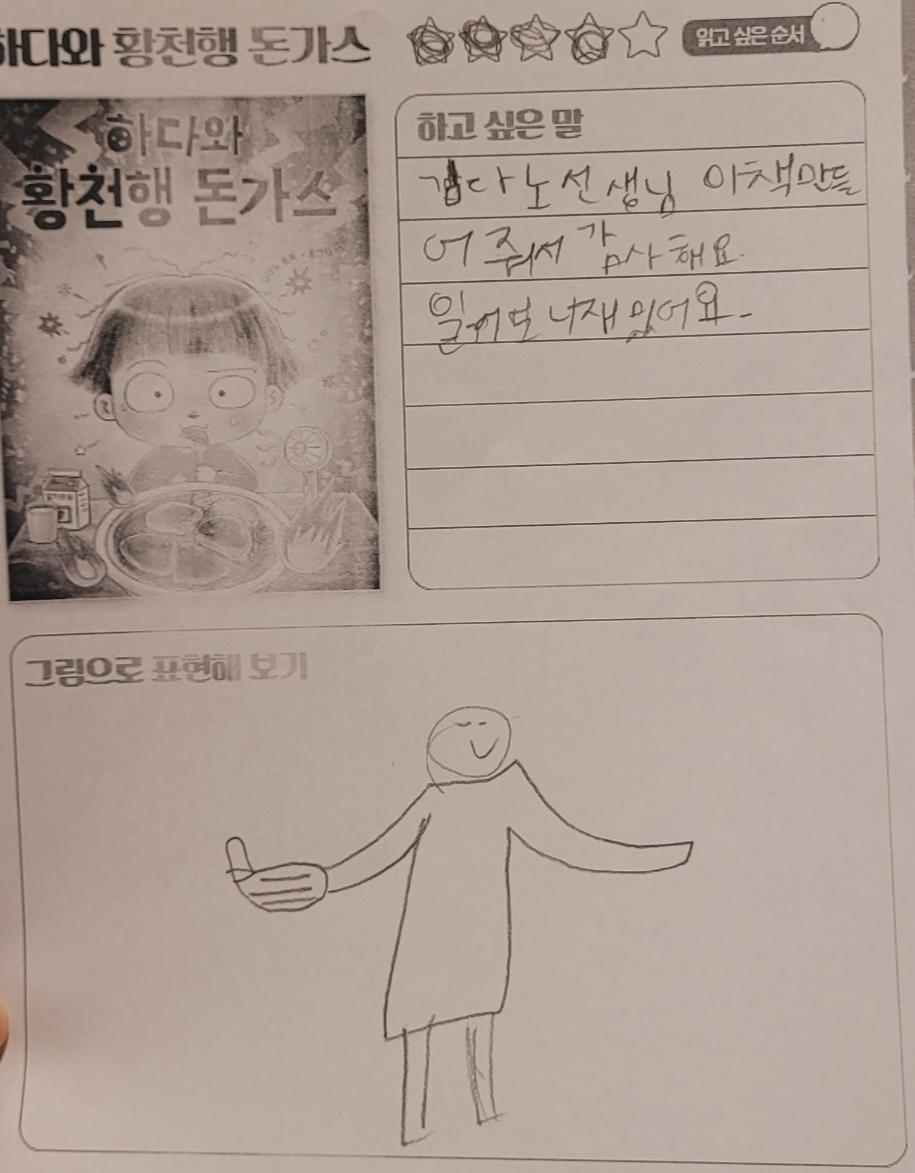 하다와 황천행 돈가스
읽고 싶은 순서
하다와
황천행 돈가스
하고 싶은 말
감다노선생님 이책만들
어 줘서 감사해요.
읽어보니재밌어요.
그림으로 표현해 보기